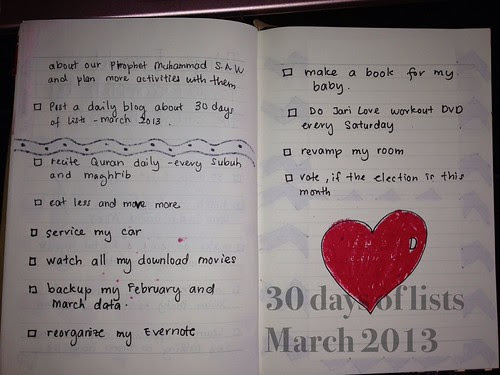 about our Prophet Muhammad S.A.W
and plan more activities with them
Post a daily blog about 30 days
of lists - march 2013.
recite Quran daily - every subuh
and maghrib
eat less and move more
service my car
watch all my download movies
backup my February and
march data.
reorganize my Evernote
make a book for my
baby.
Do Jari Love workout DVD
every Saturday
revamp my room
vote, if the election is this
month
30 days of lists
March 2013